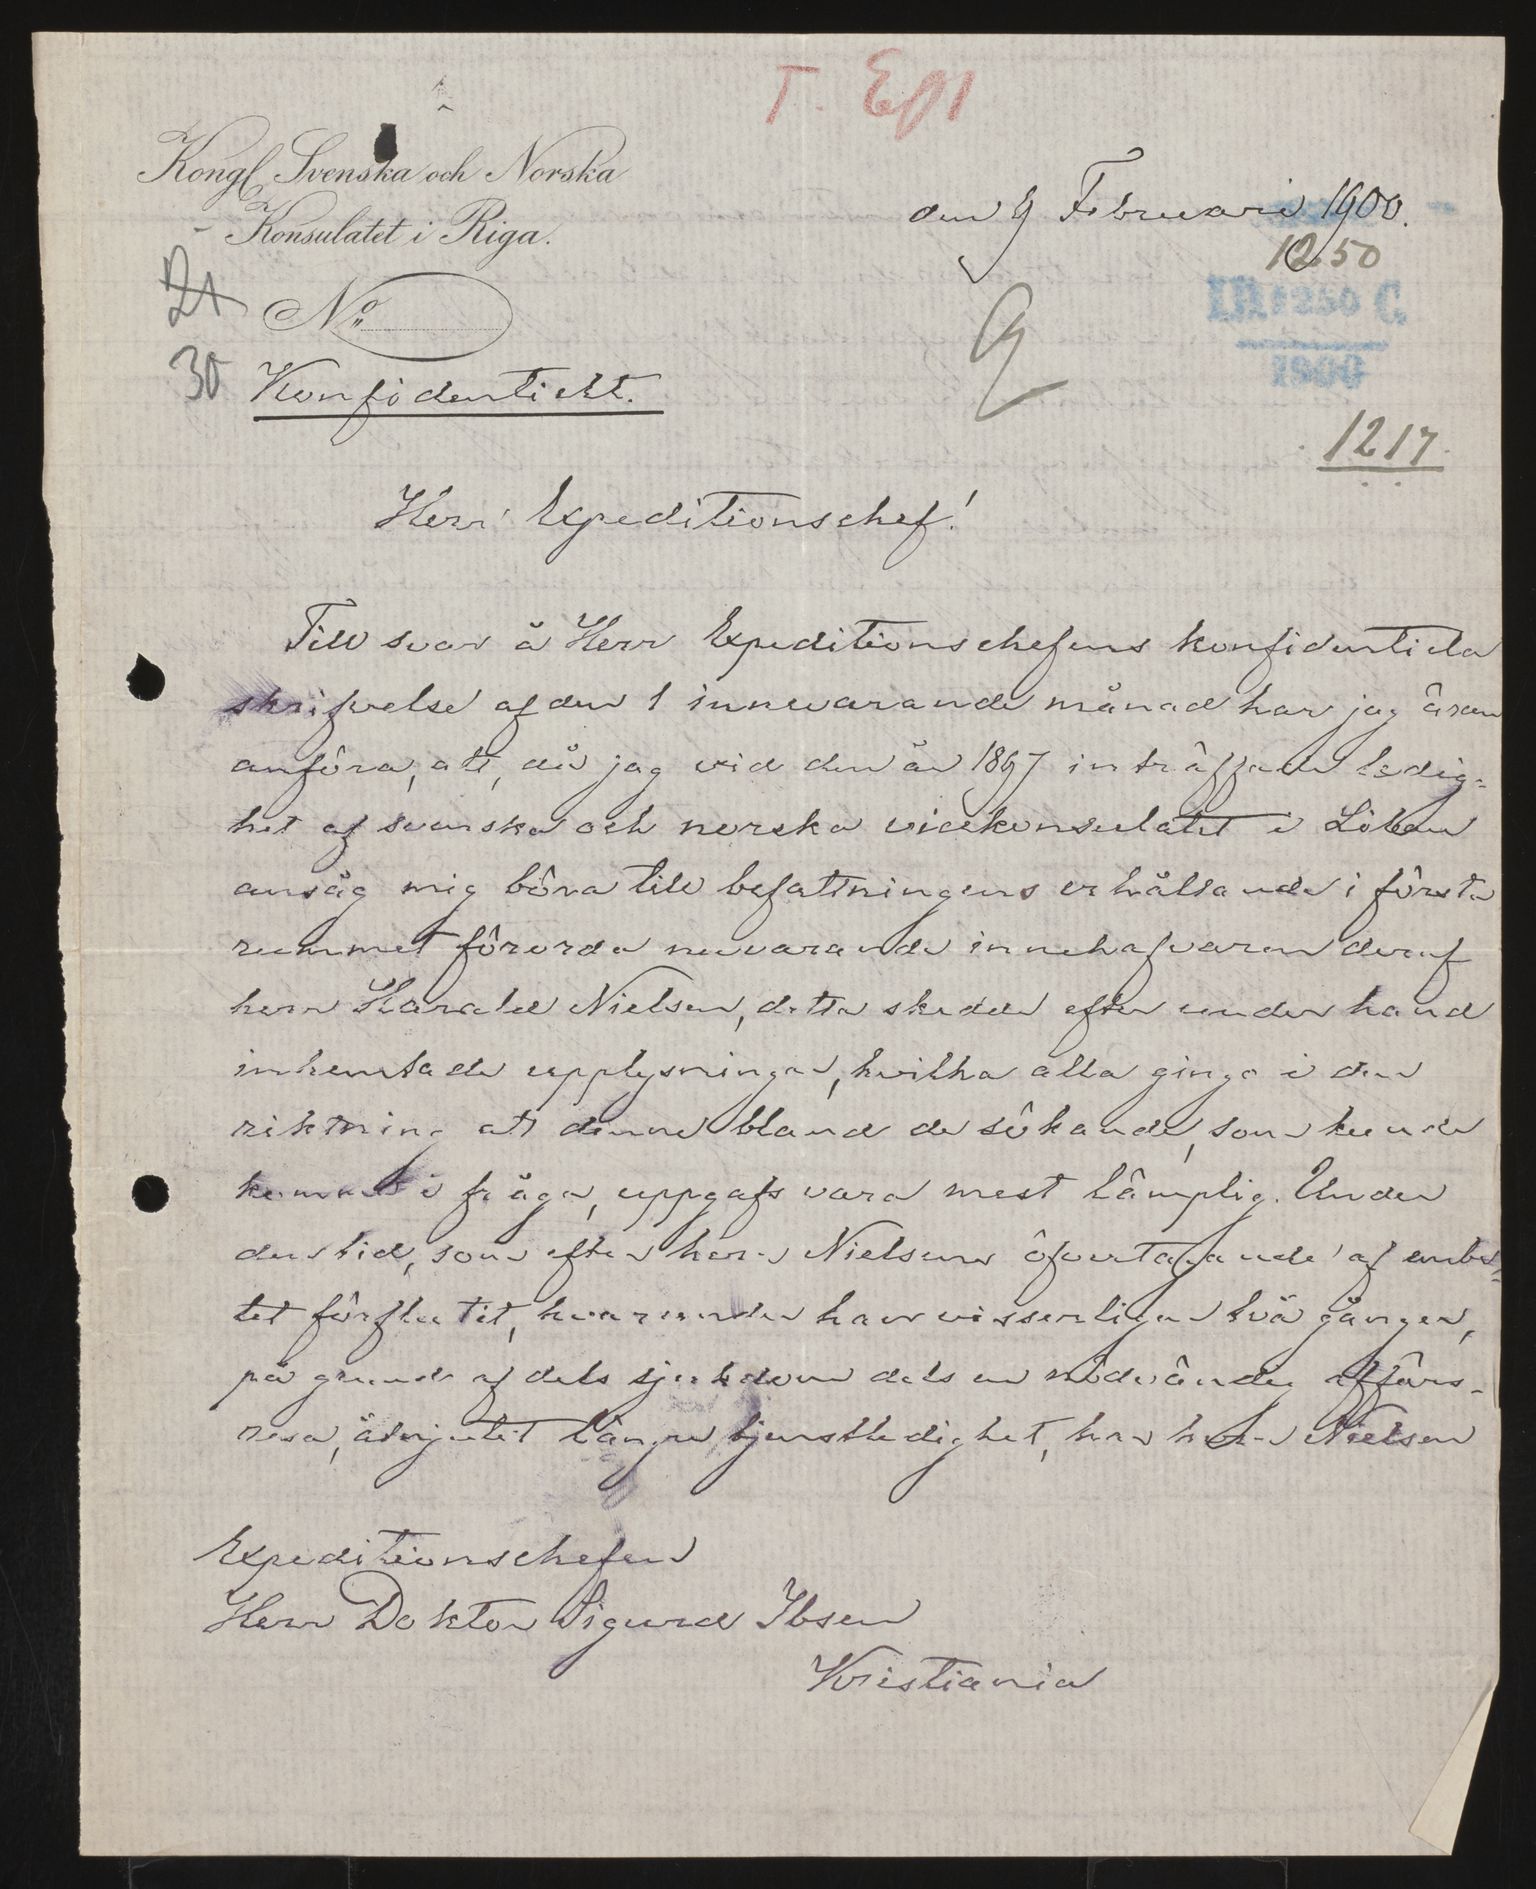 Kongl. Svenska och Norska
Konsulatet i Riga.
No
30
Konfidentielt.
den 9 Februari 1900.
1250
1250 C
1900
1217
Herr Expeditionschef!
Till svar å Herr Expeditionschefens konfidentiela
skrifvelse af den 1 innevarande månad har jag äran
anföra, att, då jag vid den år 1897 inträffade ledig-
het af svenska och norska vicekonsulatet i Libau
ansåg mig böra till befattningens erhållande i första
rummet förorda nuvarande innehafvaren deraf
herr Harald Nielsen, detta skedde efter under hand
inhemtade upplysningar, hvilka alla gingo i den
riktning att denne bland de sökande, som kunde
komma i fråga, uppgafs vara mest lämplig. Under
den tid, som efter herr Nielsens öfvertagande af embe-
tet förflutit, hvarunder han visserligen två gånger,
på grund af dels sjukdom dels en nödvändig affärs-
resa, åtnjutit längre tjenstledighet, har herr Nielsen
Expeditionschefen
Herr Doktor Sigurd Ibsen
Kristiania